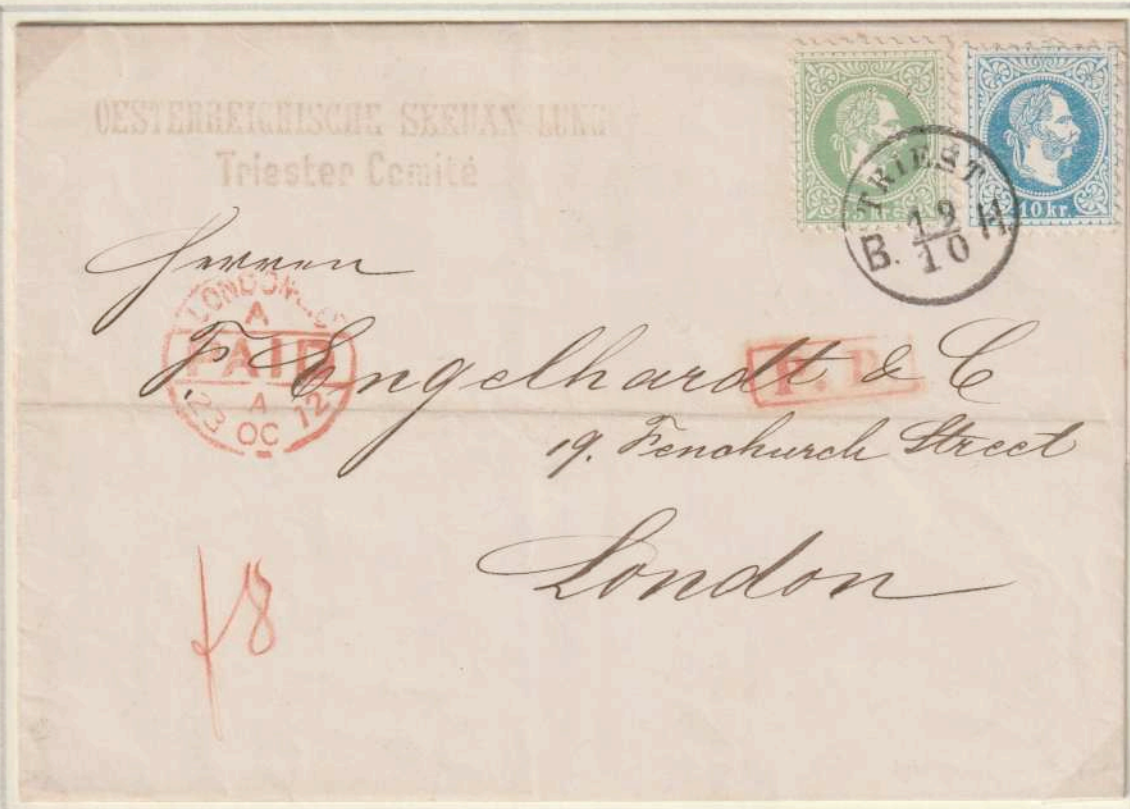 OESTERREICHISCHE SEEHAN LUNG
Triester Comité
10 kr.
TRIEST
B. 19/10 H.
Herren
LONDON
A
PAID
A
23 OC 72
F. Engelhardt & C
P.D.
19. Fenchurch Street
London
f 8